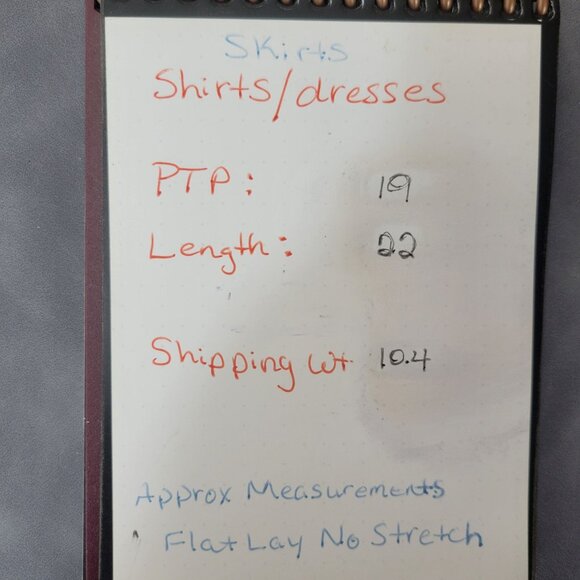 Skirts
Shirts/dresses
PTP: 19
Length: 22
Shipping Wt 10.4
Approx Measurements
Flat Lay No Stretch